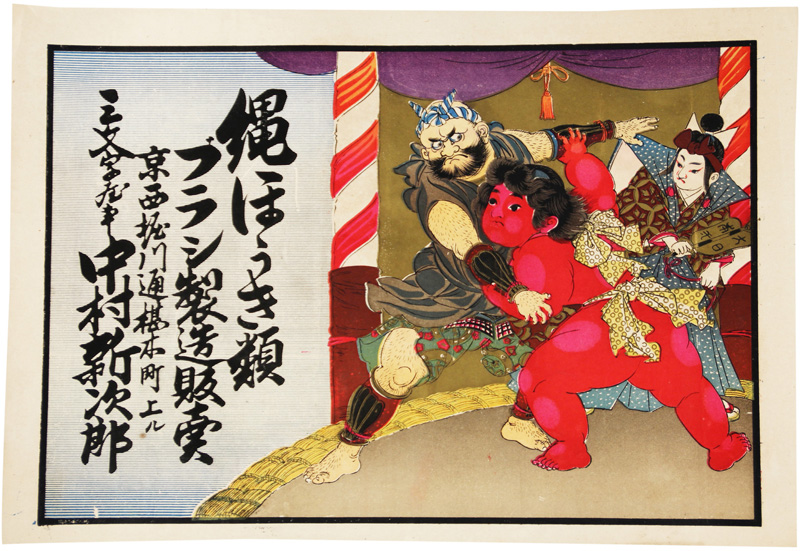 縄ほうき類
ブラシ製造販賣
京西堀川通椹木町上ル
三文字屋事 中村新次郎